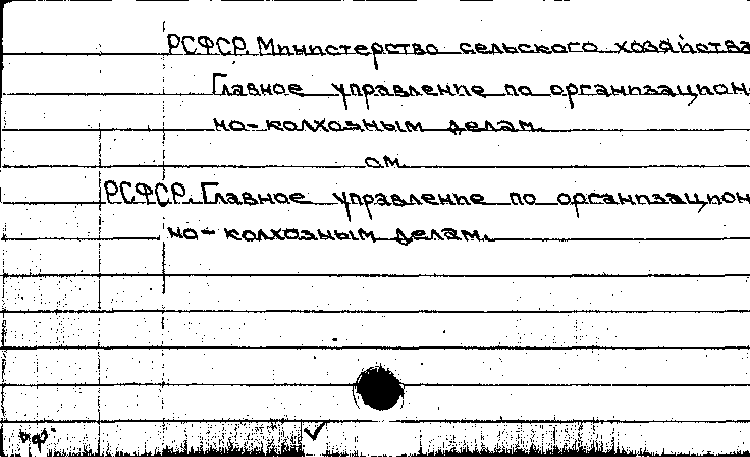 РСФСР. Министерство сельского хозяйства
Главное управление по организацион-
но-колхозным делам.
см.
РСФСР. Главное управление по организацион-
но-колхозным делам.